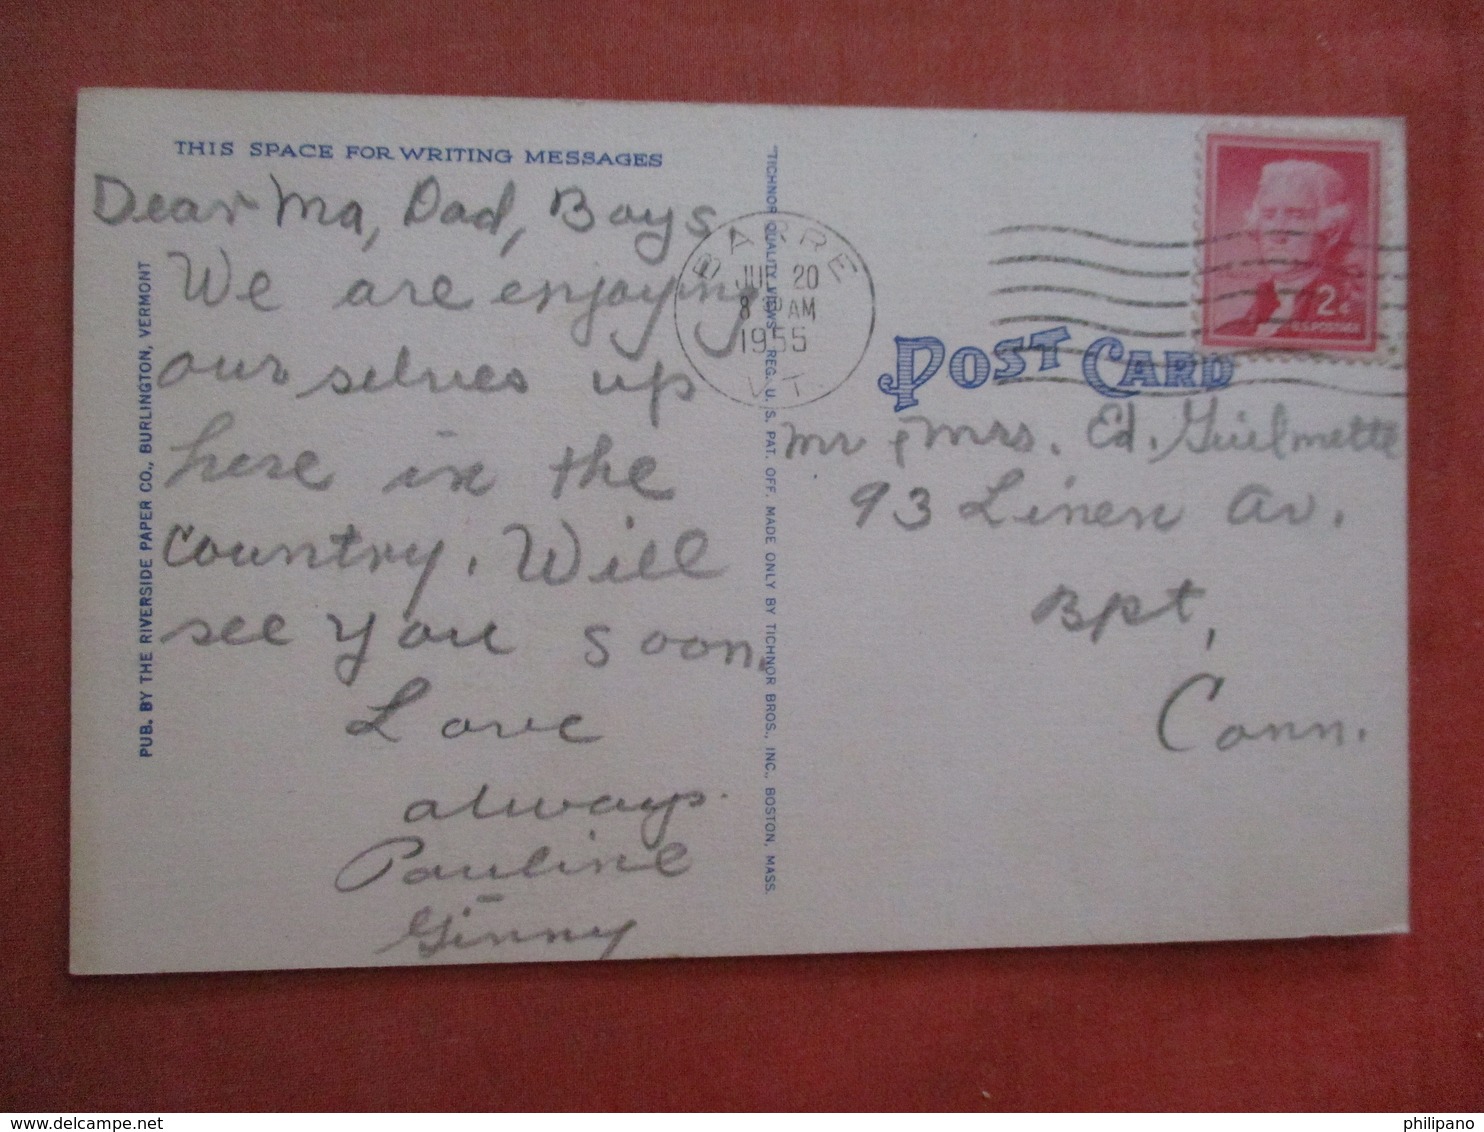 THIS SPACE FOR WRITING MESSAGES
Dear Ma, Dad, Boys
We are enjoying
our selves up
here in the
country. Will
see you soon.
Love
always
Pauline
Ginny
PUB. BY THE RIVERSIDE PAPER CO., BURLINGTON, VERMONT
"TICHNOR QUALITY VIEWS" REG. U. S. PAT. OFF. MADE ONLY BY TICHNOR BROS., INC., BOSTON, MASS.
BARRE
JUL 20
8 AM
1955
VT.
2¢
U.S. POSTAGE
POST CARD
Mr & Mrs. Ed. Guilmette
93 Linen Av.
Bpt,
Conn.
www.delcampe.net
philipano